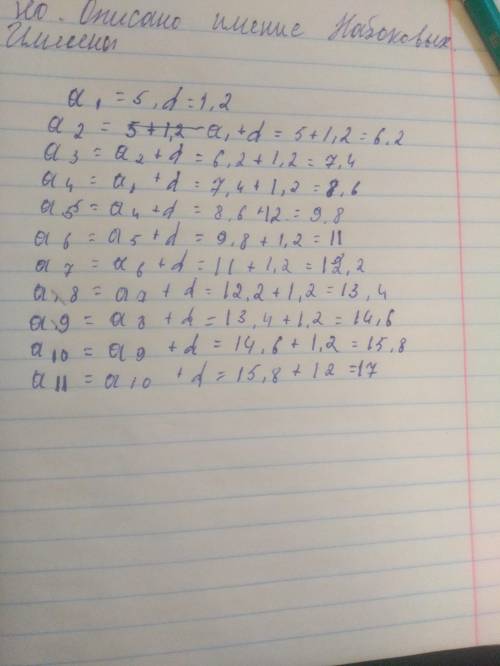 но. Описано имение Набоковых.
Имены
a1 = 5, d = 1,2
a2 = 5+1,2 a1+d = 5+1,2=6,2
a3 = a2+d = 6,2+1,2=7,4
a4 = a1+d = 7,4+1,2=8,6
a5 = a4+d = 8,6+12=9,8
a6 = a5+d = 9,8+1,2=11
a7 = a6+d = 11+1,2=12,2
a8 = a7+d = 12,2+1,2=13,4
a9 = a8+d = 13,4+1,2=14,6
a10 = a9+d = 14,6+1,2=15,8
a11 = a10+d = 15,8+12=17